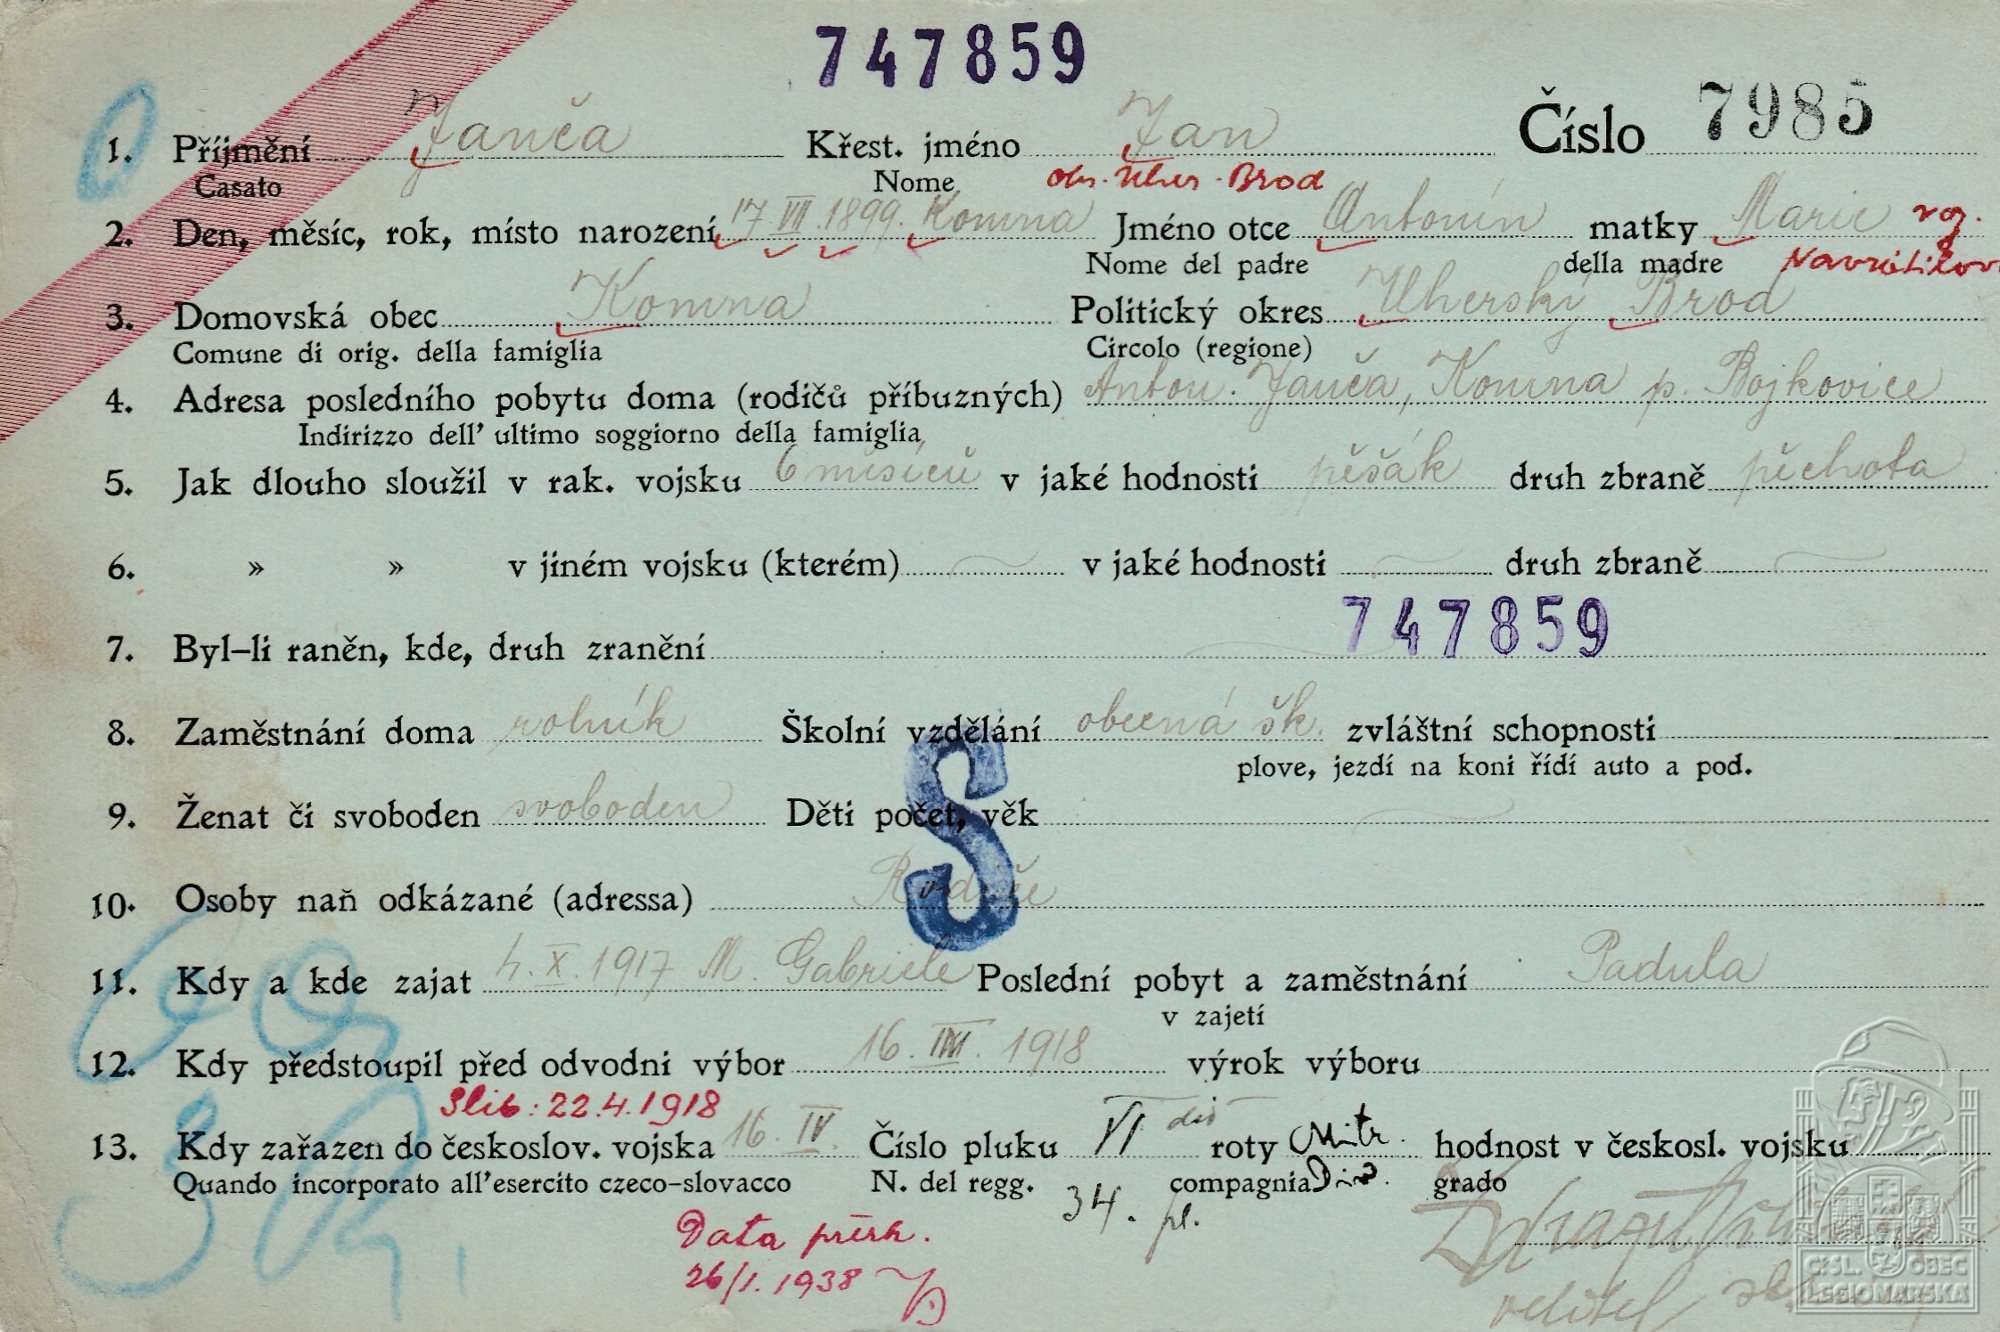 747859
1. Příjmění Janča Křest. jméno Jan Číslo 7985
Casato Nome okr. Uher. Brod
2. Den, měsíc, rok, místo narození 17. VII. 1899. Komna Jméno otce Antonín matky Marie roz.
Nome del padre della madre
3. Domovská obec Komna Politický okres Uherský Brod
Comune di orig. della famiglia Circolo (regione)
4. Adresa posledního pobytu doma (rodičů příbuzných) Anton. Janča, Komna p. Bojkovice
Indirizzo dell' ultimo soggiorno della famiglia
5. Jak dlouho sloužil v rak. vojsku 6 měsíců v jaké hodnosti pěšák druh zbraně pěchota
6. » » v jiném vojsku (kterém) v jaké hodnosti druh zbraně
747859
7. Byl-li raněn, kde, druh zranění
8. Zaměstnání doma rolník Školní vzdělání obecná šk. zvláštní schopnosti
plove, jezdí na koni řídí auto a pod.
S
9. Ženat či svoboden svoboden Děti počet, věk
10. Osoby naň odkázané (adressa) Rodiče
11. Kdy a kde zajat 4. X. 1917 M. Gabriele Poslední pobyt a zaměstnání Padula
v zajetí
12. Kdy předstoupil před odvodni výbor 16. 1918 výrok výboru
Slib: 22.4.1918
13. Kdy zařazen do českoslov. vojska 16. IV. Číslo pluku VI div roty Mitr. hodnost v českosl. vojsku
Quando incorporato all'esercito czeco-slovacco N. del regg. 34. pl. compagnia Div. grado
Data přezk.
26/1. 1938
velitel
ČSL. OBEC
LEGIONÁŘSKÁ